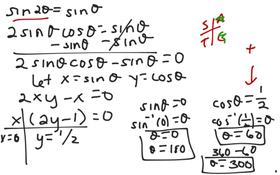 sin2θ = sinθ
2sinθcosθ = sinθ
-sinθ -sinθ
2sinθcosθ - sinθ = 0
Let x = sinθ y = cosθ
2xy - x = 0
x(2y - 1) = 0
x = 0 y = 1/2
S A
T C
+
sinθ = 0
sin⁻¹(0) = θ
θ = 0
θ = 180
cosθ = 1/2
cos⁻¹(1/2) = θ
θ = 60
360 - 60
θ = 300